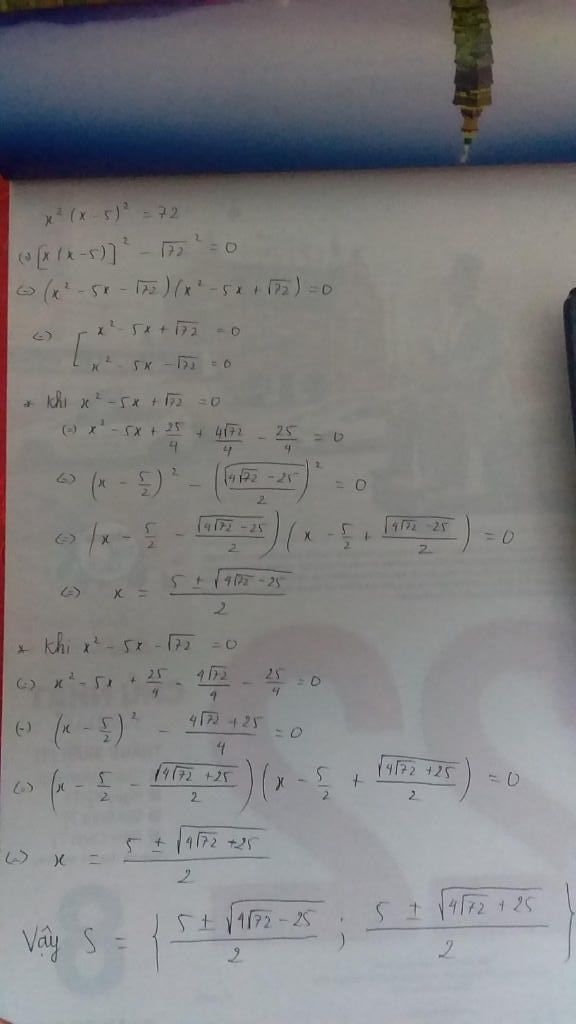 x² (x-5)² = 72
(=) [x(x-5)]² - √72² = 0
(=) (x² - 5x - √72)(x² - 5x + √72) = 0
(=) [ x² - 5x + √72 = 0
x² - 5x - √72 = 0
* Khi x² - 5x + √72 = 0
(=) x² - 5x + 25/4 + 4√72/4 - 25/4 = 0
(=) (x - 5/2)² - (√(4√72 - 25)/2)² = 0
(=) (x - 5/2 - √(4√72 - 25)/2)(x - 5/2 + √(4√72 - 25)/2) = 0
(=) x = (5 ± √(4√72 - 25))/2
* Khi x² - 5x - √72 = 0
(=) x² - 5x + 25/4 - 4√72/4 - 25/4 = 0
(=) (x - 5/2)² - (4√72 + 25)/4 = 0
(=) (x - 5/2 - √(4√72 + 25)/2)(x - 5/2 + √(4√72 + 25)/2) = 0
(=) x = (5 ± √(4√72 + 25))/2
Vậy S = { (5 ± √(4√72 - 25))/2 ; (5 ± √(4√72 + 25))/2 }